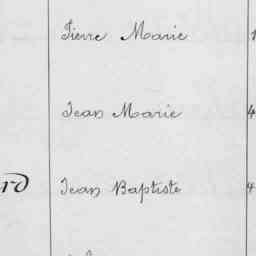 Pierre Marie
Jean Marie 4
rd Jean Baptiste 4